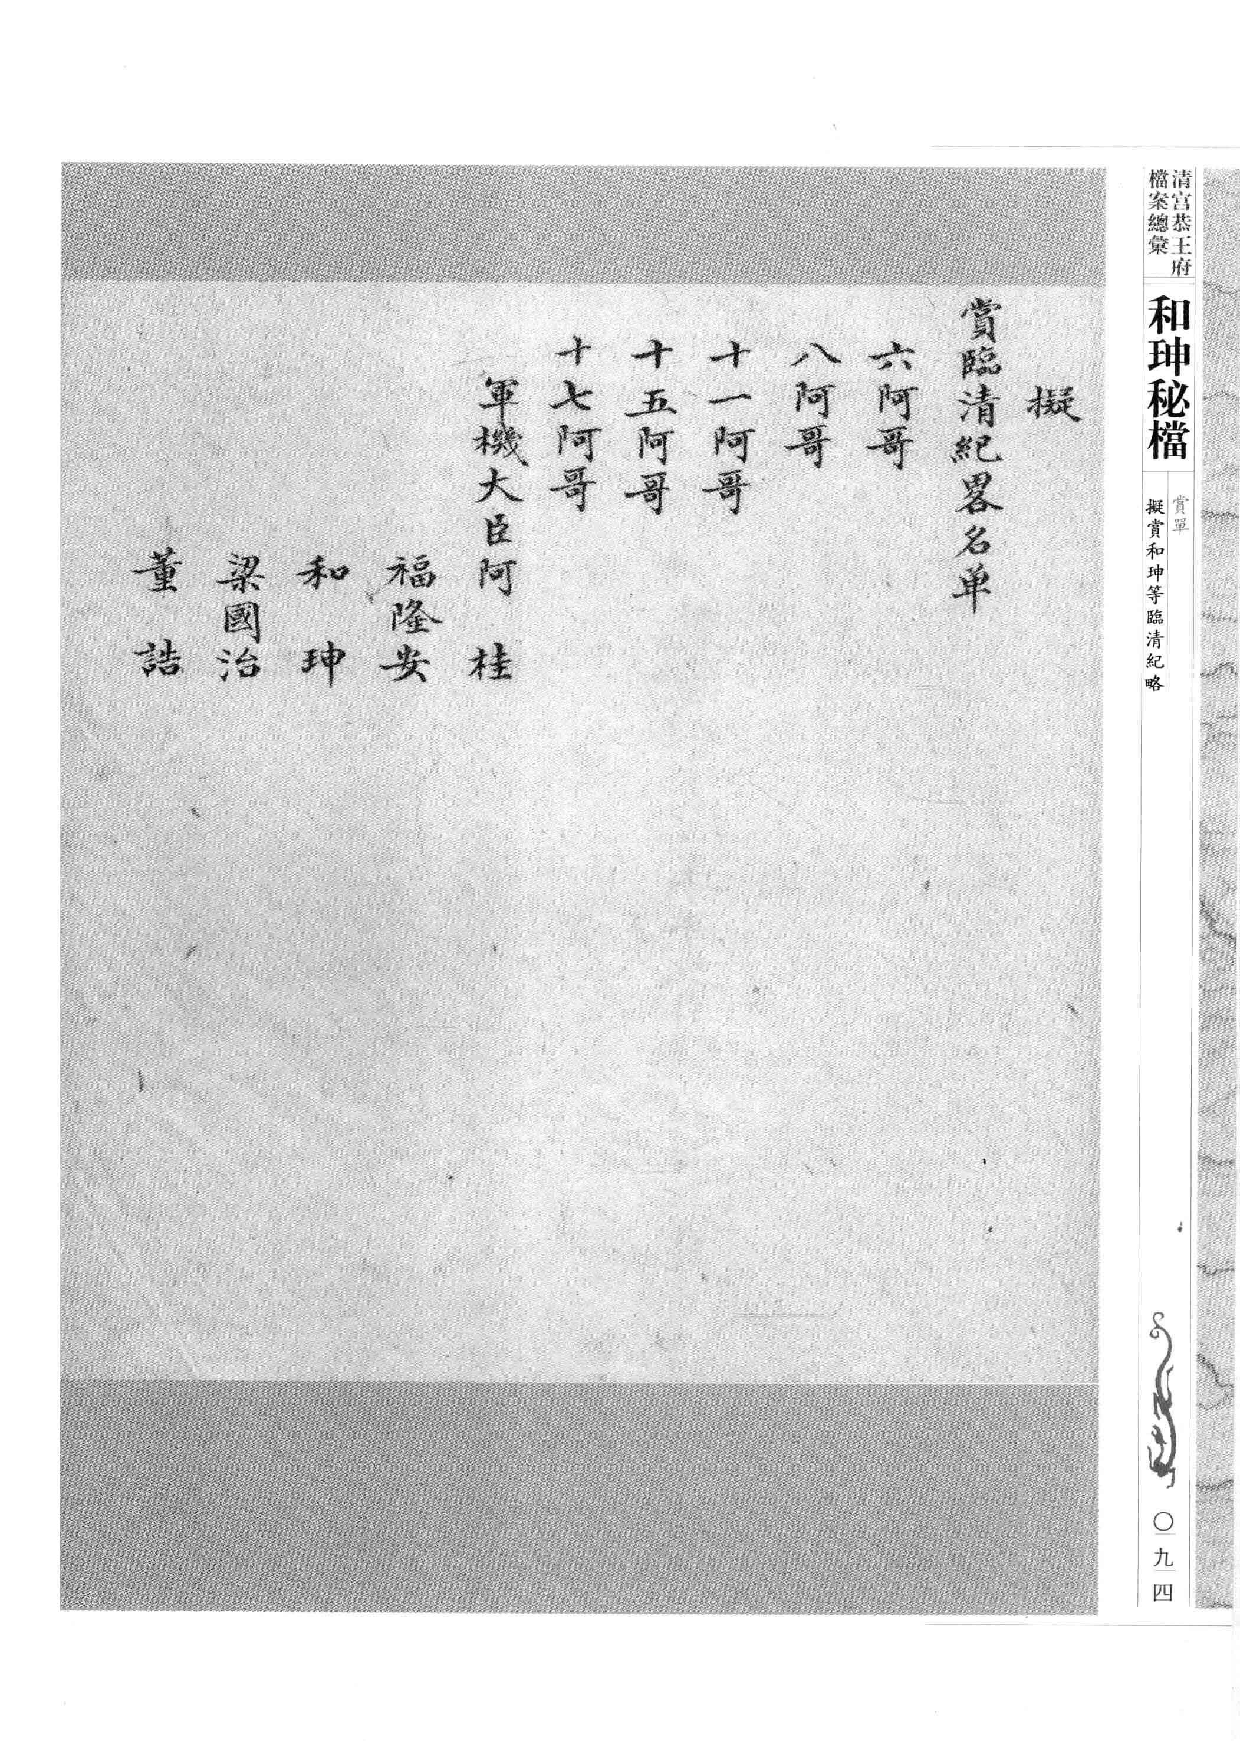 清宫恭王府
檔案總彙
和珅秘檔
賞單
擬賞和珅等臨清紀略
〇九四
擬
賞臨清紀畧名单
六阿哥
八阿哥
十一阿哥
十五阿哥
十七阿哥
軍機大臣阿桂
福隆安
和珅
梁國治
董誥